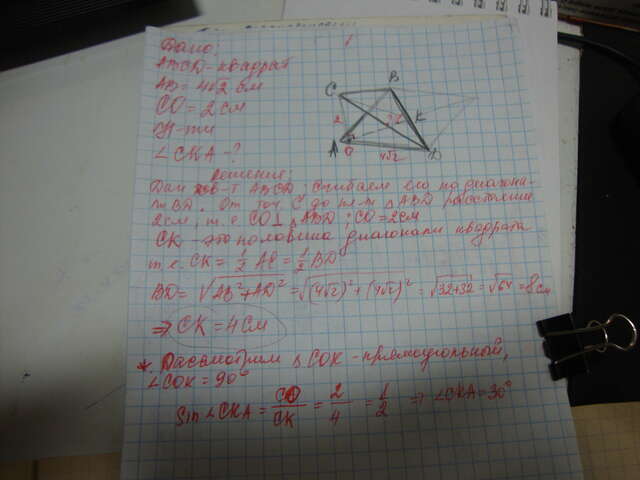 Дано:
ABCD-квадрат
AD=4√2 см
CO=2см
∠CKA-?
решение:
Дан кв-т ABCD; сгибаем его по диагона-
ли BD. От точ. C до пл-ти △ABD расстояние
2см, т.е CO⊥△ABD; CO=2см
CK-это половина диагонали квадрата
т.е. CK=1/2 AC=1/2 BD
BD=√AB²+AD²=√(4√2)²+(4√2)²=√32+32=√64=8см
⇒ CK=4см
* Рассмотрим △COK-прямоугольный,
∠COK=90°
Sin∠CKA=CO/CK=2/4=1/2 ⇒ ∠CKA=30°
C B K A O D 2 4√2